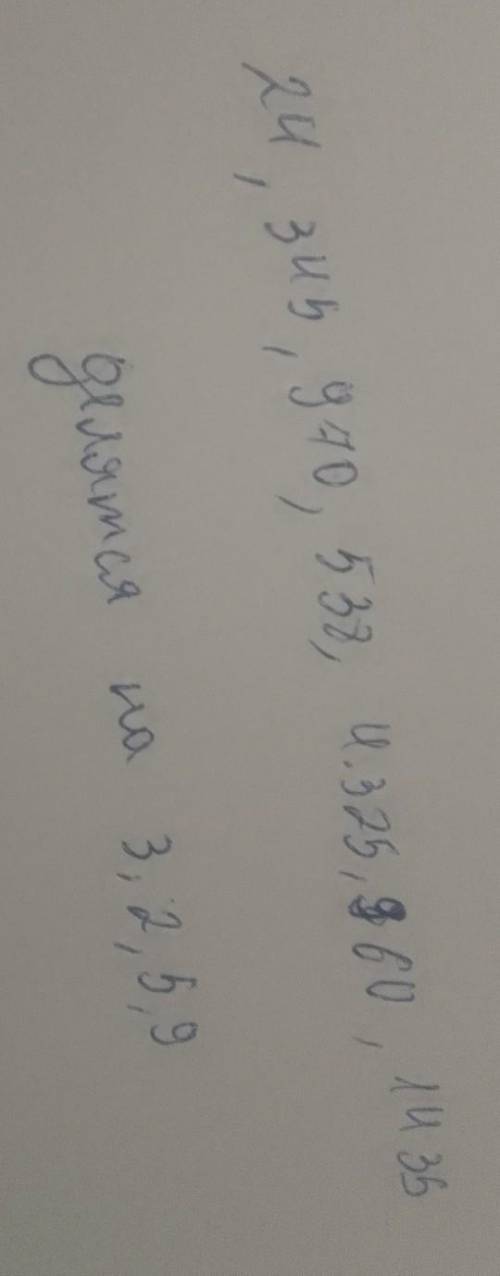 24, 345, 970, 538, 4.325, 960, 1435
делятся на 3, 2, 5, 9